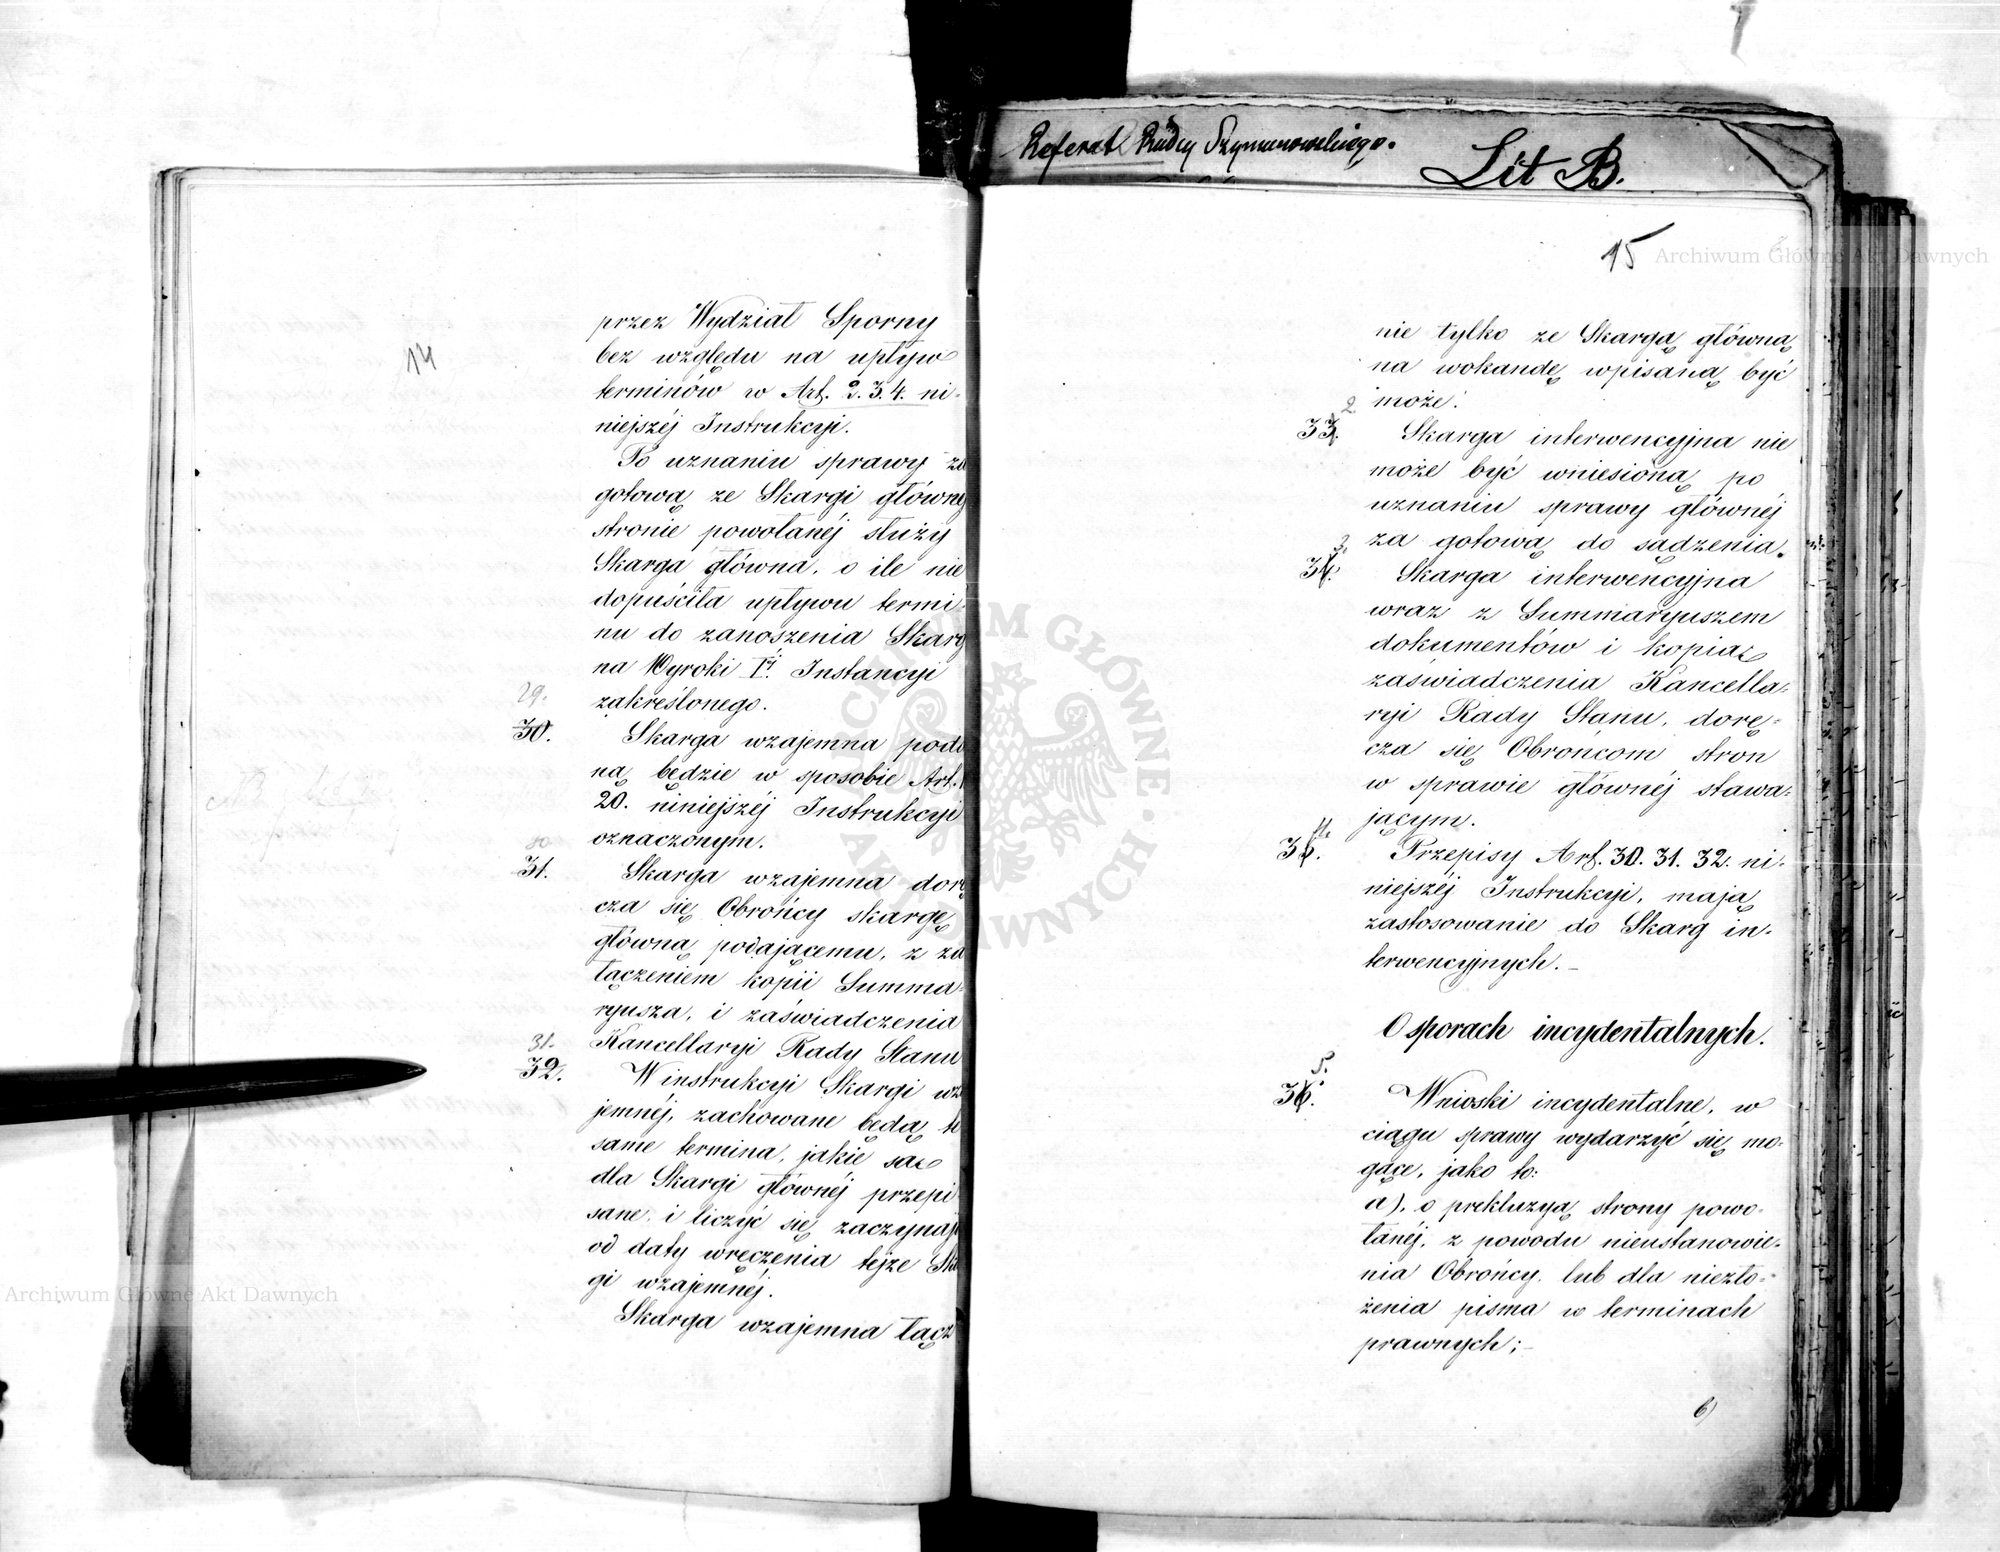 14
przez Wydział Sporny
bez względu na upływ
terminów w Art. 2. 3. 4. ni-
niejszéj Instrukcyi.
Po uznaniu sprawy za
gotową ze Skargi główné
stronie powołanéj służy
Skarga główna, o ile nie
dopuściła upływu termi-
nu do zanoszenia Skarg
na Wyroki Iéj. Instancyi
zakreślonego.
29.
30. Skarga wzajemna poda
ną będzie w sposobie Art.
20. niniejszéj Instrukcyi
oznaczonym.
30
31. Skarga wzajemna dorę
cza się Obrońcy skargę
główną podającemu, z za
łączeniem kopii Summa-
ryusza, i zaświadczenia
Kancellaryi Rady Stanu
31.
32. W instrukcyi Skargi wza
jemnéj, zachowane będą te
same termina, jakie są
dla Skargi głównéj przepi
sane, i liczyć się zaczynają
od daty wręczenia tejże Skar
gi wzajemnéj.
Skarga wzajemna łącz
Referat Radcy Szymanowskiego.
Lit B.
15
nie tylko ze Skargą główną
na wokandę wpisaną być
może.
2
33. Skarga interwencyjna nie
może być wniesioną po
uznaniu sprawy głównéj
za gotową do sądzenia.
3.
34. Skarga interwencyjna
wraz z Summaryuszem
dokumentów i kopią
zaświadczenia Kancella-
ryi Rady Stanu, dorę-
cza się Obrońcom stron
w sprawie głównéj stawa-
jącym.
4.
35. Przepisy Art. 30. 31. 32. ni-
niejszéj Instrukcyi, mają
zastosowanie do Skarg in-
terwencyjnych.—
O sporach incydentalnych.
5.
36. Wnioski incydentalne, w
ciągu sprawy wydarzyć się mo-
gące, jako to:
a), o prekluzyą strony powo-
łanéj, z powodu nieustanowie-
nia Obrońcy, lub dla niezło-
żenia pisma w terminach
prawnych;—
b)
Archiwum Główne Akt Dawnych
Archiwum Główne Akt Dawnych
ARCHIWUM GŁÓWNE AKT DAWNYCH